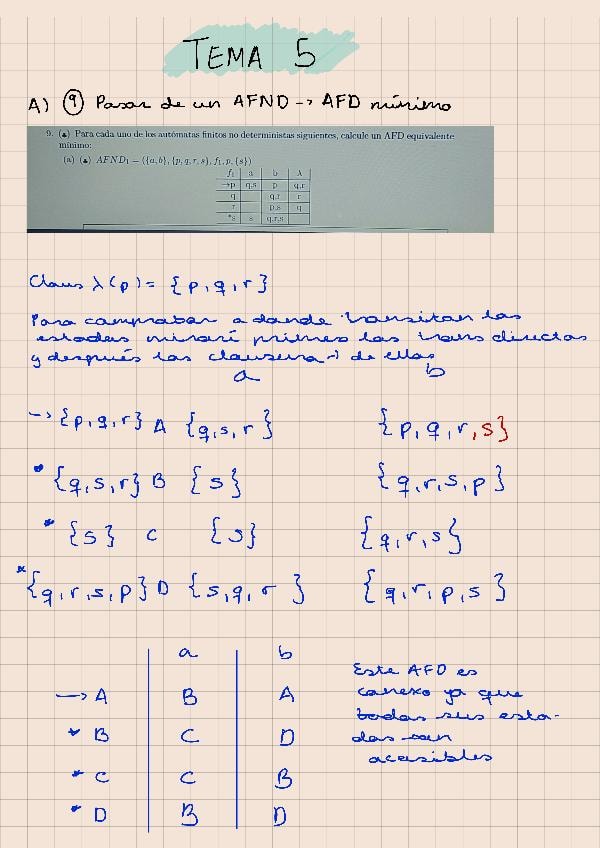 TEMA 5
A) (9) Pasar de un AFND → AFD mínimo
9. (▲) Para cada uno de los autómatas finitos no deterministas siguientes, calcule un AFD equivalente
mínimo:
(a) (▲) AFND₁ = ({a,b}, {p,q,r,s}, f₁, p, {s})
f₁ a b λ
→p q,s p q,r
q q,r r
r p,s q
*s s q,r,s
Claus λ(p) = {p,q,r}
Para comprobar a donde transitan los
estados miraré primero las trans directas
y después las clausura-λ de ellas
a b
→ {p,q,r} A {q,s,r} {p,q,r,s}
* {q,s,r} B {s} {q,r,s,p}
* {s} C {s} {q,r,s}
* {q,r,s,p} D {s,q,r} {q,r,p,s}
a b
→ A B A
* B C D
* C C B
* D B D
Este AFD es
conexo ya que
todos sus esta-
dos son
accesibles